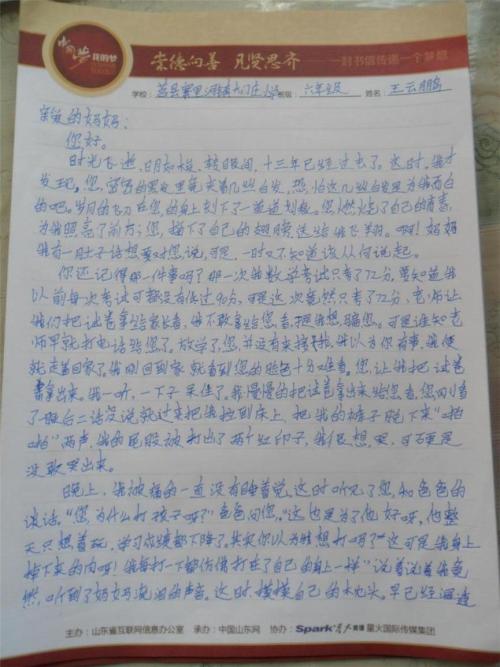 中国梦 我的梦
崇德向善 见贤思齐 一封书信传递一个梦想
学校：莒县寨里河镇大门庄小学 班级：六年级 姓名：王云鹏
亲爱的妈妈：
您好。
时光飞逝，日月如梭，转眼间，十三年已经过去了。这时，我才
发现，您，窝窝的黑发里夹杂着几丝白发，恐怕这几丝白发是为我而白
的吧。岁月的飞刀在您的身上刻下了一道道划痕。您燃烧了自己的青春，
为我照亮了前方，您，折下了自己的翅膀送给我飞翔。啊！妈妈
我有一肚子话想要对您说，可是，一时又不知道该从何说起。
你还记得那一件事吗？那一次我数学考试只考了72分，要知道我
以前每次考试可都没有低过90分，可是这次竟然只考了72分，老师让
我们把试卷拿给家长看，我不敢拿给您看，于是我想骗您。可是谁知老
师早就打电话给您了。放学了，您并没有来接我，我以为你有事，我便
就走着回家了。我刚回到家就看到您的脸色十分难看。您，让我把试卷
拿出来。我一听，一下子呆住了。我慢慢的把试卷拿出来给您看，您
了一眼后二话没说就过来把我拉到床上，把我的裤子脱下来“啪
啪”两声，我的屁股被打出了两个红印子，我很想哭，可不是
没敢哭出来。
晚上，我被疼的一直没有睡着觉，这时听见了您和爸爸的
谈话。“您，为什么打孩子呀？”爸爸问您，“这也是为了他好呀，他整
天只想着玩，学习成绩都下降了。其实你以为我想打吗？这可是我身上
掉下来的肉呀！我每打一下都仿佛打在了自己的身上一样”说着说着我竟
然，听到了妈妈流泪的声音，这时，摸摸自己的枕头。早已经湿透
主办：山东省互联网信息办公室 承办：中国山东网 协办：Spark星火英语 星火国际传媒集团